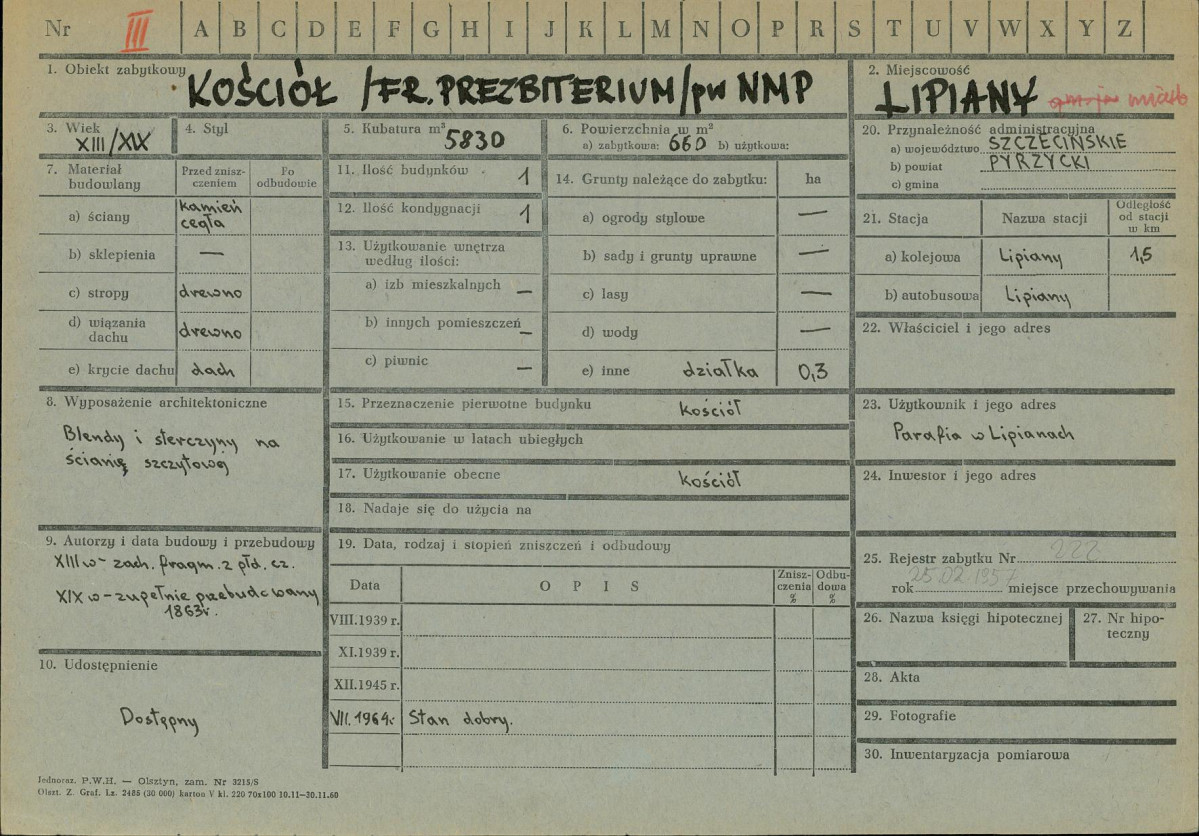 Nr III A B C D E F G H I J K L M N O P R S T U V W X Y Z
1. Obiekt zabytkowy
KOŚCIÓŁ /FR. PREZBITERIUM/ pw NMP
2. Miejscowość
LIPIANY miasto
3. Wiek
XIII/XIX
4. Styl
5. Kubatura m³
5830
6. Powierzchnia w m²
a) zabytkowa: 660 b) użytkowa:
20. Przynależność administracyjna
a) województwo SZCZECIŃSKIE
b) powiat PYRZYCKI
c) gmina
7. Materiał budowlany
Przed zniszczeniem
Po odbudowie
a) ściany kamień cegła
b) sklepienia —
c) stropy drewno
d) wiązania dachu drewno
e) krycie dachu dach
11. Ilość budynków 1
12. Ilość kondygnacji 1
13. Użytkowanie wnętrza według ilości:
a) izb mieszkalnych —
b) innych pomieszczeń —
c) piwnic —
14. Grunty należące do zabytku: ha
a) ogrody stylowe —
b) sady i grunty uprawne —
c) lasy —
d) wody —
e) inne działka 0,3
21. Stacja Nazwa stacji Odległość od stacji w km
a) kolejowa Lipiany 1,5
b) autobusowa Lipiany
22. Właściciel i jego adres
8. Wyposażenie architektoniczne
Blendy i sterczyny na
ścianię szczytowej
15. Przeznaczenie pierwotne budynku kościół
16. Użytkowanie w latach ubiegłych
17. Użytkowanie obecne kościół
18. Nadaje się do użycia na
23. Użytkownik i jego adres
Parafia w Lipianach
24. Inwestor i jego adres
9. Autorzy i data budowy i przebudowy
XIII w – zach. fragm. z płd. cz.
XIX w – zupełnie przebudowany
1863r.
19. Data, rodzaj i stopień zniszczeń i odbudowy
Data O P I S Zniszczenia % Odbudowa %
VIII.1939 r.
XI.1939 r.
XII.1945 r.
VII.1964r Stan dobry.
25. Rejestr zabytku Nr 222
rok 25.02.1957 miejsce przechowywania
26. Nazwa księgi hipotecznej
27. Nr hipoteczny
28. Akta
29. Fotografie
30. Inwentaryzacja pomiarowa
10. Udostępnienie
Dostępny
Jednoraz. P.W.H. — Olsztyn, zam. Nr 3215/S
Olszt. Z. Graf. Lz. 2486 (30 000) karton V kl. 220 70x100 10.11—30.11.60